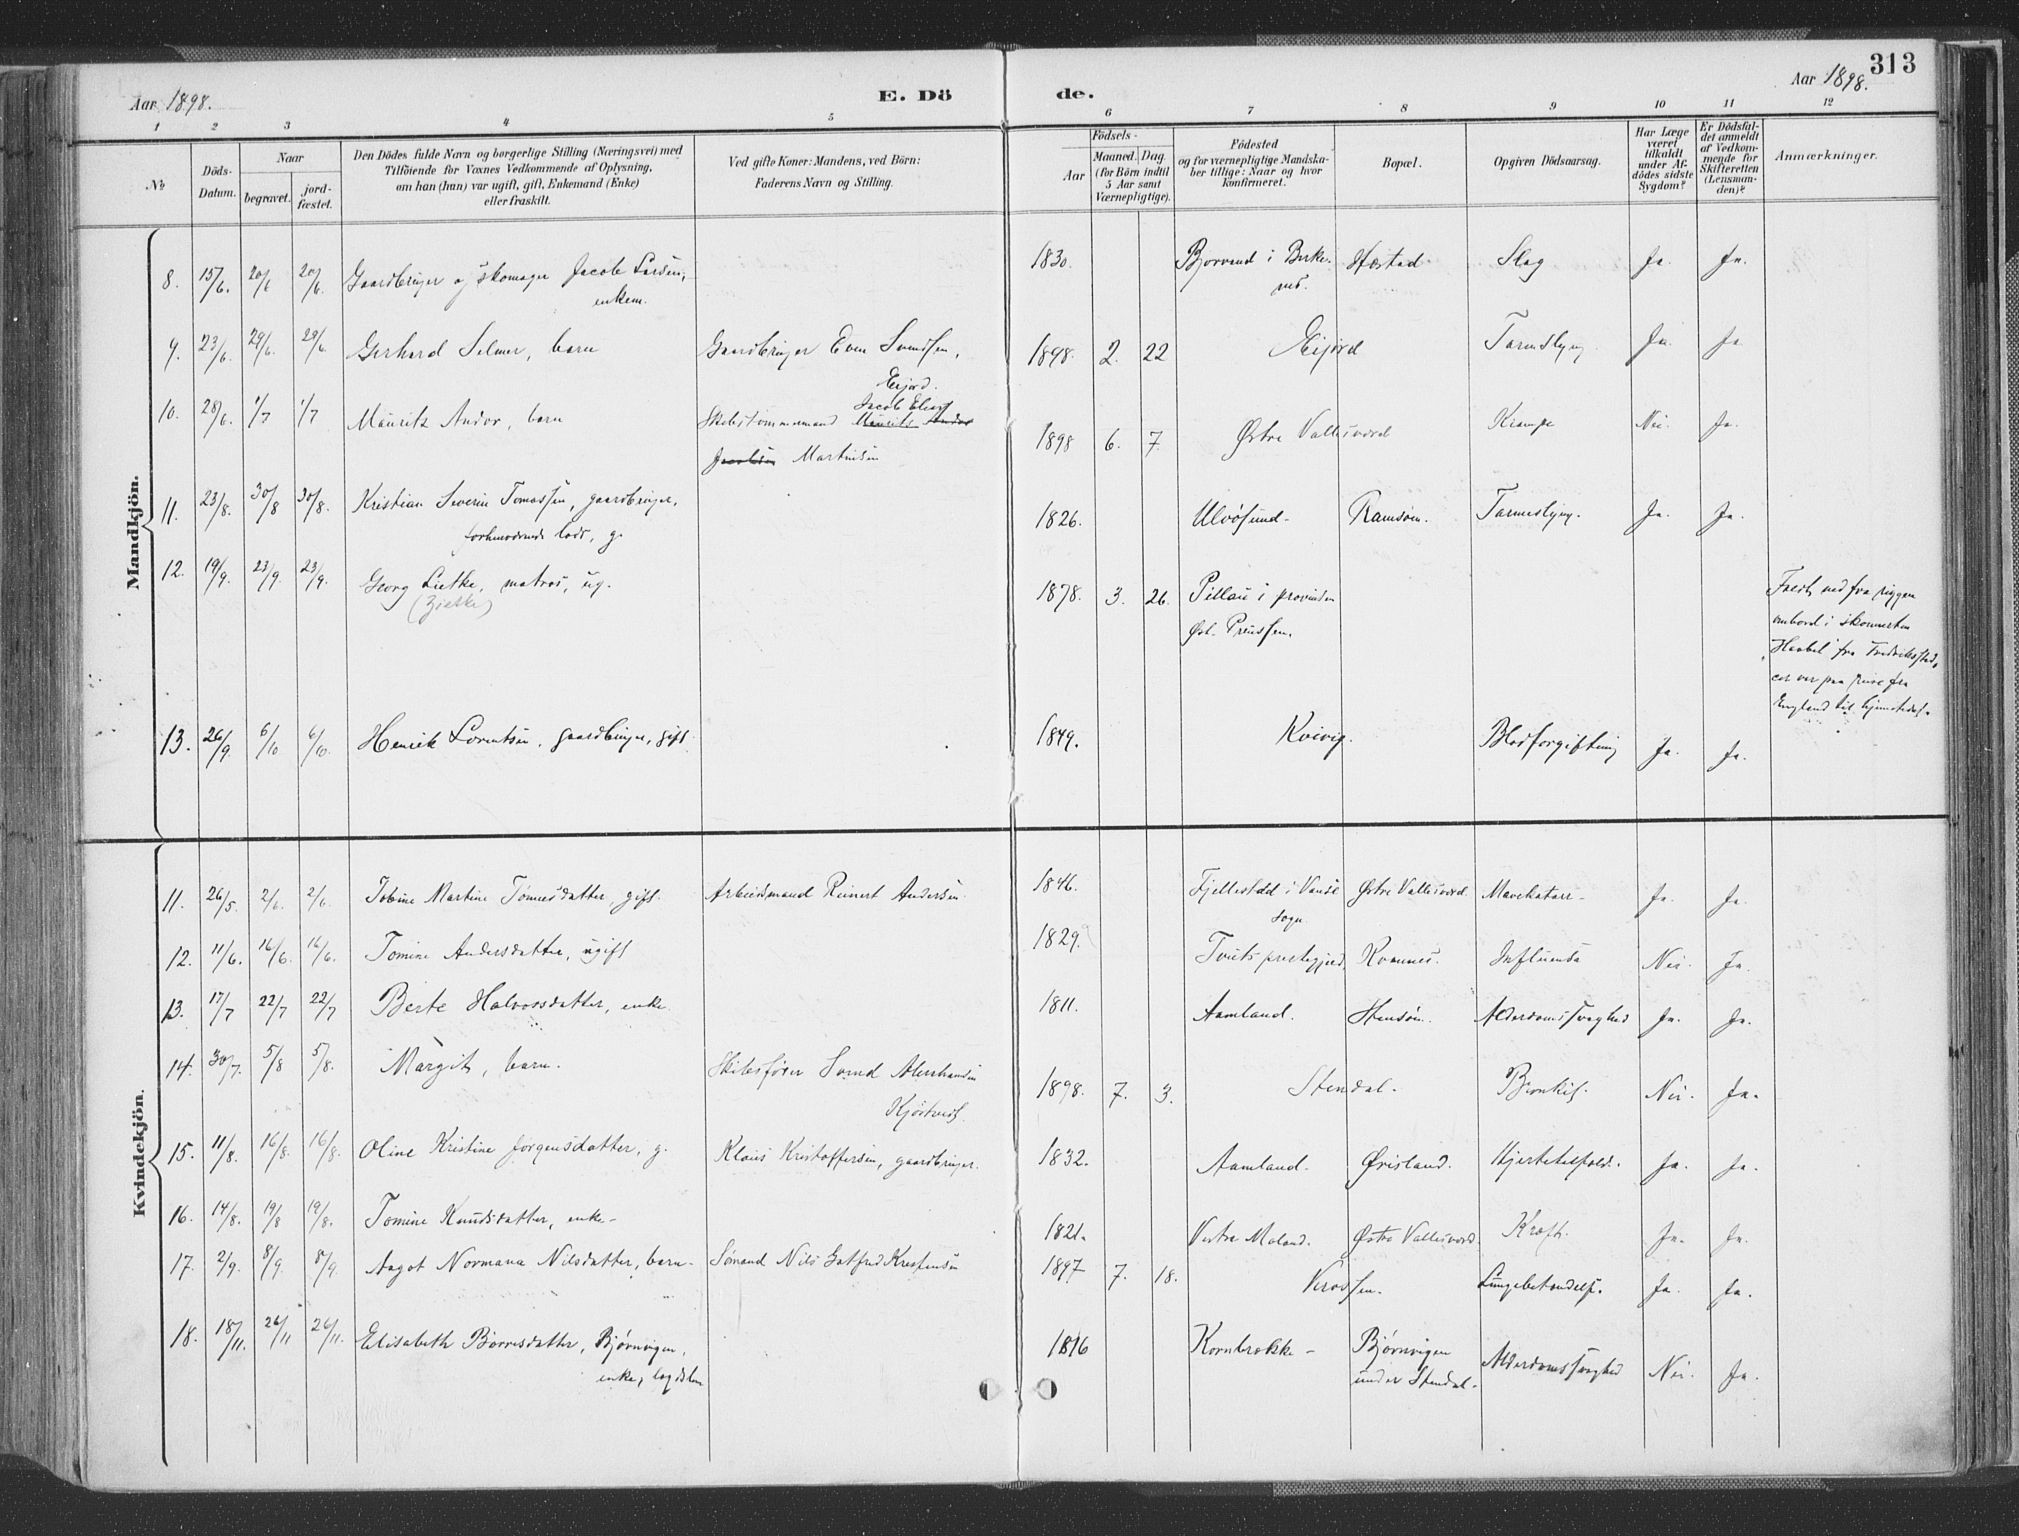 313
Aar 1898.
E. Dö
de.
Aar 1898.
1 2 3 4 5 6 7 8 9 10 11 12
№
Döds-Datum.
Naar
begravet.
jord-fæstet.
Den Dödes fulde Navn og borgerlige Stilling (Næringsvei) med
Tilföiende for Voxnes Vedkommende af Oplysning,
om han (hun) var ugift, gift, Enkemand (Enke)
eller fraskilt.
Ved gifte Koner: Mandens, ved Börn:
Faderens Navn og Stilling.
Födsels-
Aar
Maaned. Dag.
(for Börn indtil
5 Aar samt
Værnepligtige).
Födested
og for værnepligtige Mandska-
ber tillige: Naar og hvor
konfirmeret.
Bopæl.
Opgiven Dödsaarsag.
Har Læge
været
tilkaldt
under Af-
dödes sidste
Sygdom?
Er Dödsfal-
det anmeldt
af Vedkom-
mende for
Skifteretten
(Lensman-
den)?
Anmærkninger.
Mandkjön.
8. 15/6. 20/6 20/6 Gaardbruger og skomager Jacob Larsen, 1830. Bjorvand i Birke- Hæstad Slag Ja Ja.
enkem. næs.
9. 23/6. 29/6. 29/6 Gerhard Selmer, barn Gaardbruger Even Svendsen, 1898. 2. 22 Eijord Tarmslyng Ja. Ja
Eijord.
10. 28/6. 1/7 1/7 Maurits Andor, barn Skibstømmermand Jacob Elias Maurits Andor 1898 6. 7. Østre Vallesværd Krampe Nei. Ja.
Jacobsen Martinsen
11. 23/8. 30/8 30/8. Kristian Severin Tomassen, gaardbruger, 1826. Ulvøsund Ramsøen. Tarmslyng. Ja. Ja.
forhenværende lods, g.
12. 19/9. 23/9. 23/9. Georg Lietke, matros, ug. 1878. 3. 26. Pillau i provinsen
(Zietke) Øst. Preussen.
Faldt ned fra riggen
ombord i skonnerten
fra Fredriksstad,
der var paa reise fra
England til hjemstedet.
13. 26/9. 6/10 6/10. Henrik Lorentsen, gaardbruger, gift 1849. Kvivig. Blodforgiftning Ja. Ja.
Kvindekjön.
11. 26/5. 2/6. 2/6. Tobine Martine Tønnesdatter, gift. Arbeidsmand Reinert Andersen. 1846. Fjellestad i Vanse Østre Vallesværd. Mavekatarr Ja. Ja.
sogn
12. 11/6. 16/6. 16/6. Tomine Andersdatter, ugift 1829. Tveits prestegjeld, Kvannes. Influensa Nei. Ja.
13. 17/7 22/7 22/7 Berte Halvorsdatter, enke 1811. Aamland. Stensøen. Alderdomssvaghed Ja. Ja.
14. 30/7. 5/8 5/8. Margit, barn. Skibsfører Svend Abrahamsen 1898. 7. 3. Stendal. Bronkit. Nei. Ja.
15. 11/8. 16/8. 16/8. Oline Kristine Jørgensdatter, g. Klaus Kristoffersen, gaardbruger. 1832. Aamland. Øvisland. Hjertetilfælde. Ja. Ja.
16. 14/8. 19/8 19/8. Tomine Knudsdatter, enke 1821. Vestre Moland. Østre Vallesværd. Kræft. Ja. Ja.
17. 2/9. 8/9. 8/9. Aagot Normana Nilsdatter, barn Sømand Nils Gotfred Krestensen 1897 7. 18. Krossen. Lungebetændelse. Ja. Ja.
18. 18/11. 26/11 26/11. Elisabeth Børresdatter, Bjørnvigen, 1816 Kornbrække Bjørnvigen Alderdomssvaghed Nei. Ja.
enke, lægdslem under Stendal.